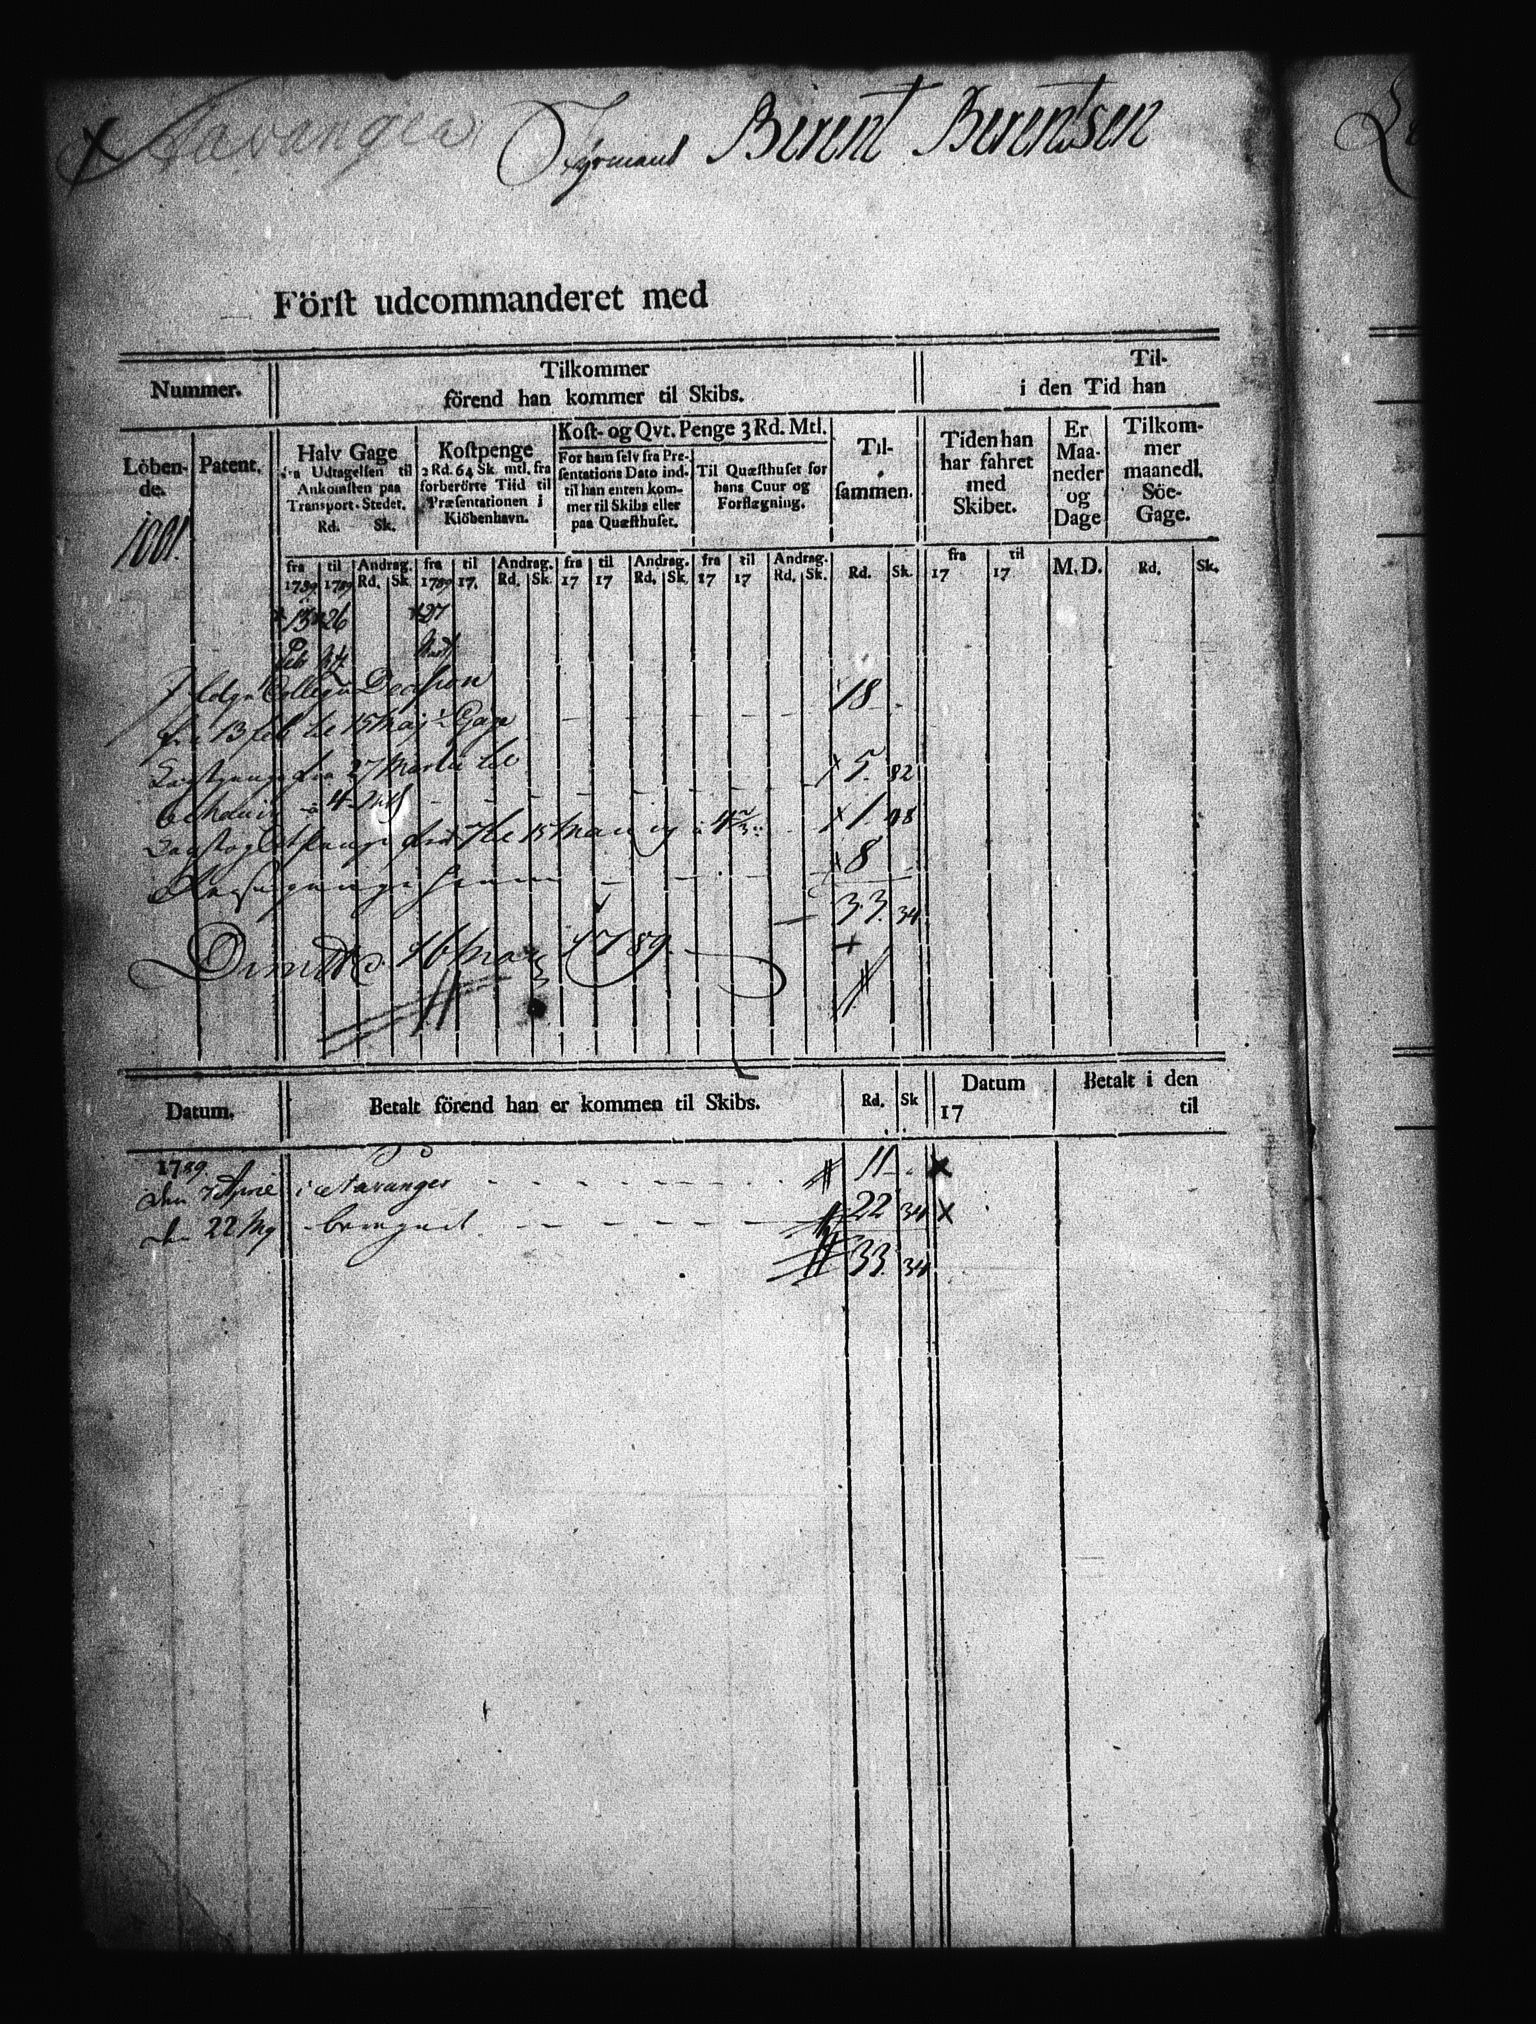 Stavanger Styrmand Berent Berentsen
Först udcommanderet med
Nummer.
Tilkommer
förend han kommer til Skibs.
Til-
i den Tid han
Löben-
de.
Patent.
Halv Gage
fra Udtagelsen til
Ankomsten paa
Transport-Stedet.
Rd. Sk.
Kostpenge
2 Rd. 64 Sk. mtl. fra
forberörte Tiid til
Præsentationen i
Kiöbenhavn.
Kost- og Qvt. Penge 3 Rd. Mtl.
For ham selv fra Pre-
sentations Dato ind-
til han enten kom-
mer til Skibs eller
paa Quæsthuset.
Til Quæsthuset for
hans Cuur og
Forflægning.
Til-
sammen.
Tiden han
har fahret
med
Skibet.
Er
Maa-
neder
og
Dage
Tilkom-
mer
maanedl.
Söe-
Gage.
1001.
fra til Andrag. fra til Andrag. fra til Andrag. fra til Andrag. Rd. Sk. fra til M.D. Rd. Sk.
1789 1789 Rd. Sk. 1789 17. Rd. Sk. 17 17 Rd. Sk. 17 17 Rd. Sk. 17 17
13 26 27
Feb
Collegii Decision
fra 13 feb til 15 Maj ½ Gage 18
fra 27 Martii til 5. 82
1. 48
8
33. 34
Dimitt. d. 16 May 1789.
Datum.
Betalt förend han er kommen til Skibs.
Rd. Sk
Datum
17
Betalt i den
til
1789.
den 7 April i Stavanger 11
den 22 May 22 34
33. 34